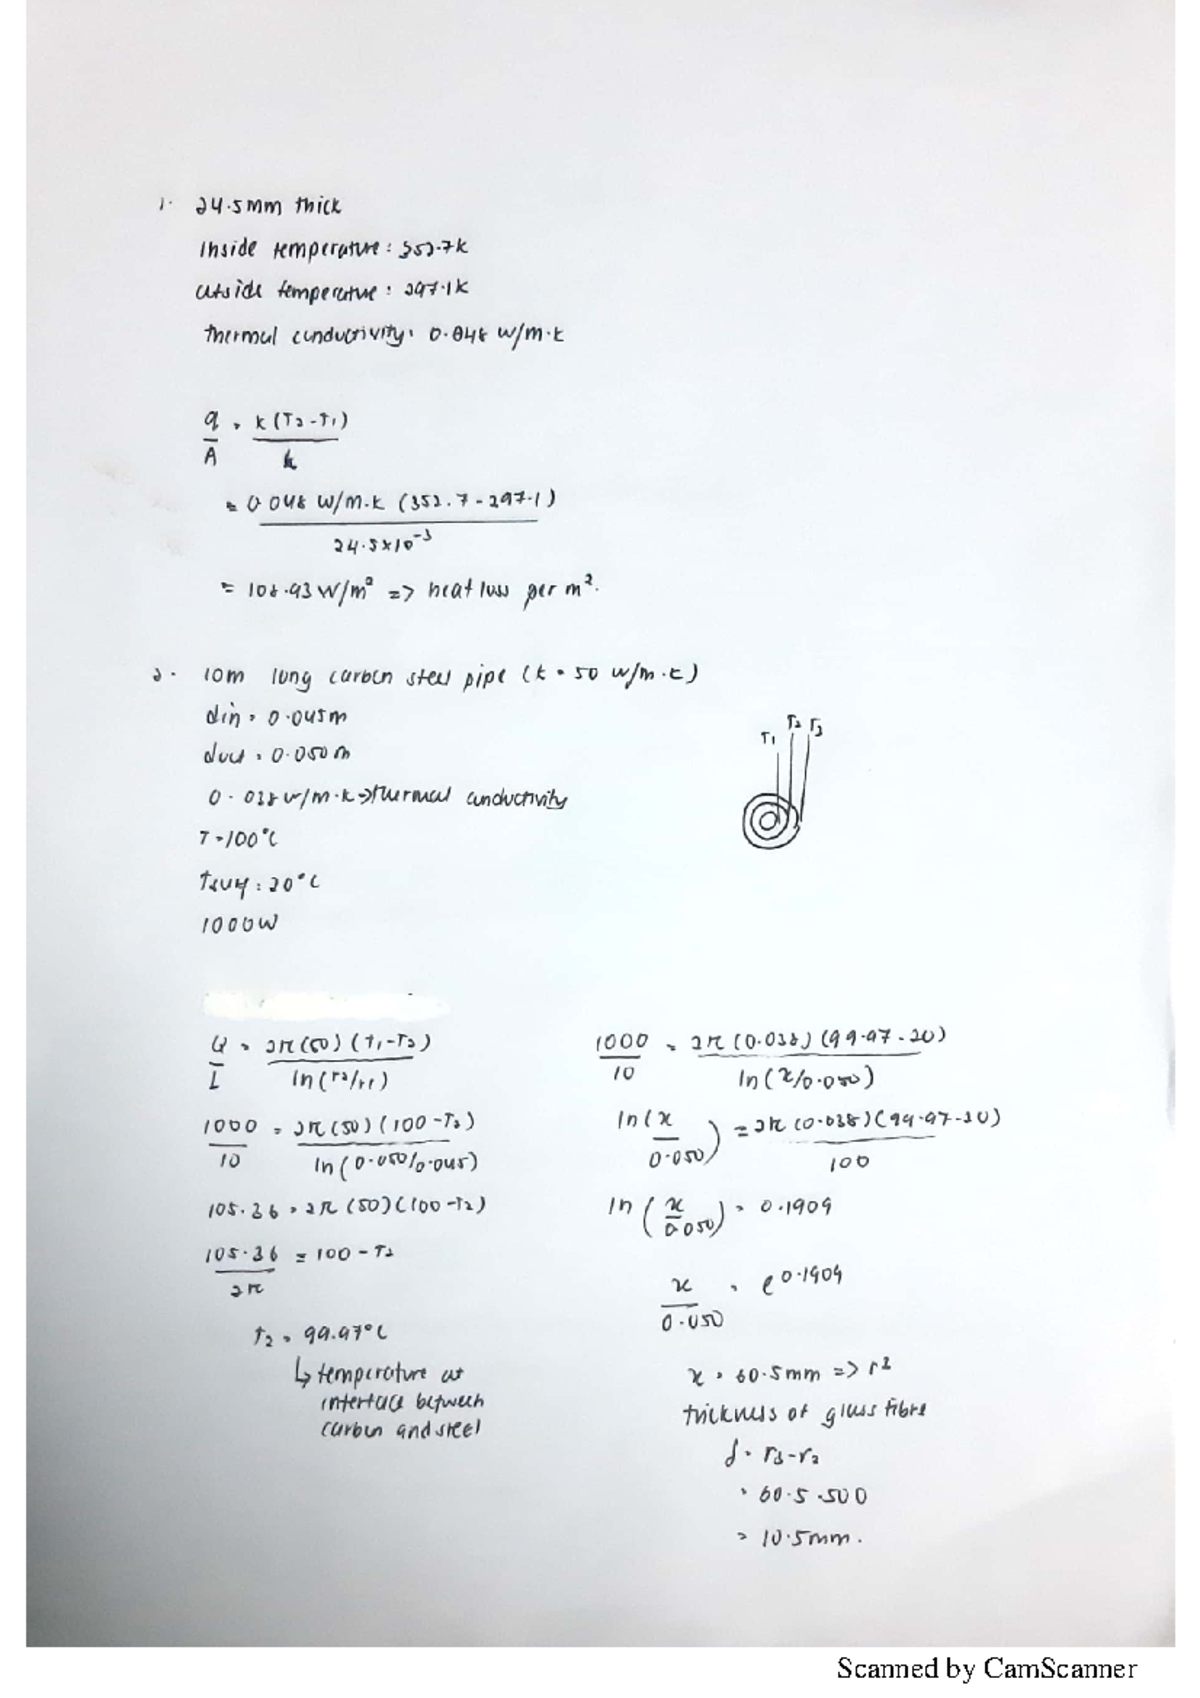 1. 24.5mm thick
inside temperature: 352.7K
outside temperature: 297.1K
thermal conductivity: 0.048 W/m.K
q/A = k(T2-T1)/
= 0.048 W/m.K (352.7-297.1)/24.5x10^-3
= 108.93 W/m² => heat loss per m².
2. 10m long carbon steel pipe (k = 50 W/m.K)
din = 0.045m
dout = 0.050m
0.038 W/m.K → thermal conductivity
T = 100°C
Tsurf: 20°C
1000W
T1 T2 T3
Q/L = 2π(50)(T1-T2)/ln(r2/r1)
1000/10 = 2π(50)(100-T2)/ln(0.050/0.045)
105.36 = 2π(50)(100-T2)
105.36/2π = 100-T2
T2 = 99.97°C
↳ temperature at
interface between
carbon and steel
1000/10 = 2π(0.038)(99.97-20)/ln(x/0.050)
ln(x/0.050) = 2π(0.038)(99.97-20)/100
ln(x/0.050) = 0.1909
x/0.050 = e^0.1909
x = 60.5mm => r²
thickness of glass fibre
d = r3-r2
= 60.5-500
= 10.5mm.
Scanned by CamScanner